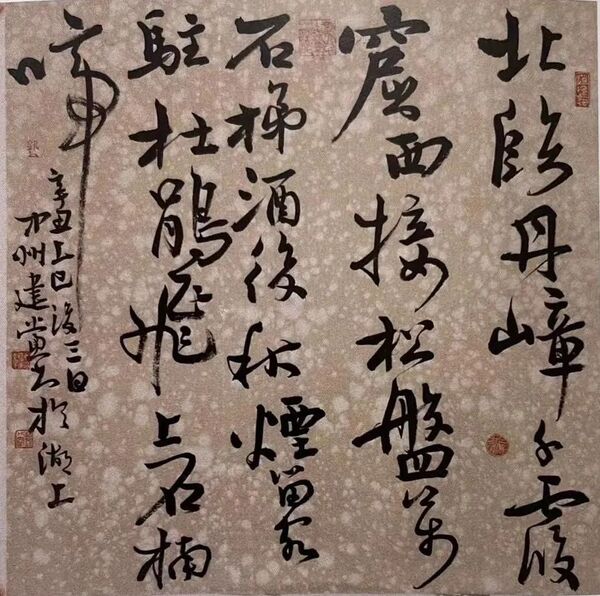 北臨丹嶂千霞
窟西接松盤萬
石梯酒後秋煙留客
駐杜鵑飛上石楠
啼
辛丑上巳後三日
州建於湖上